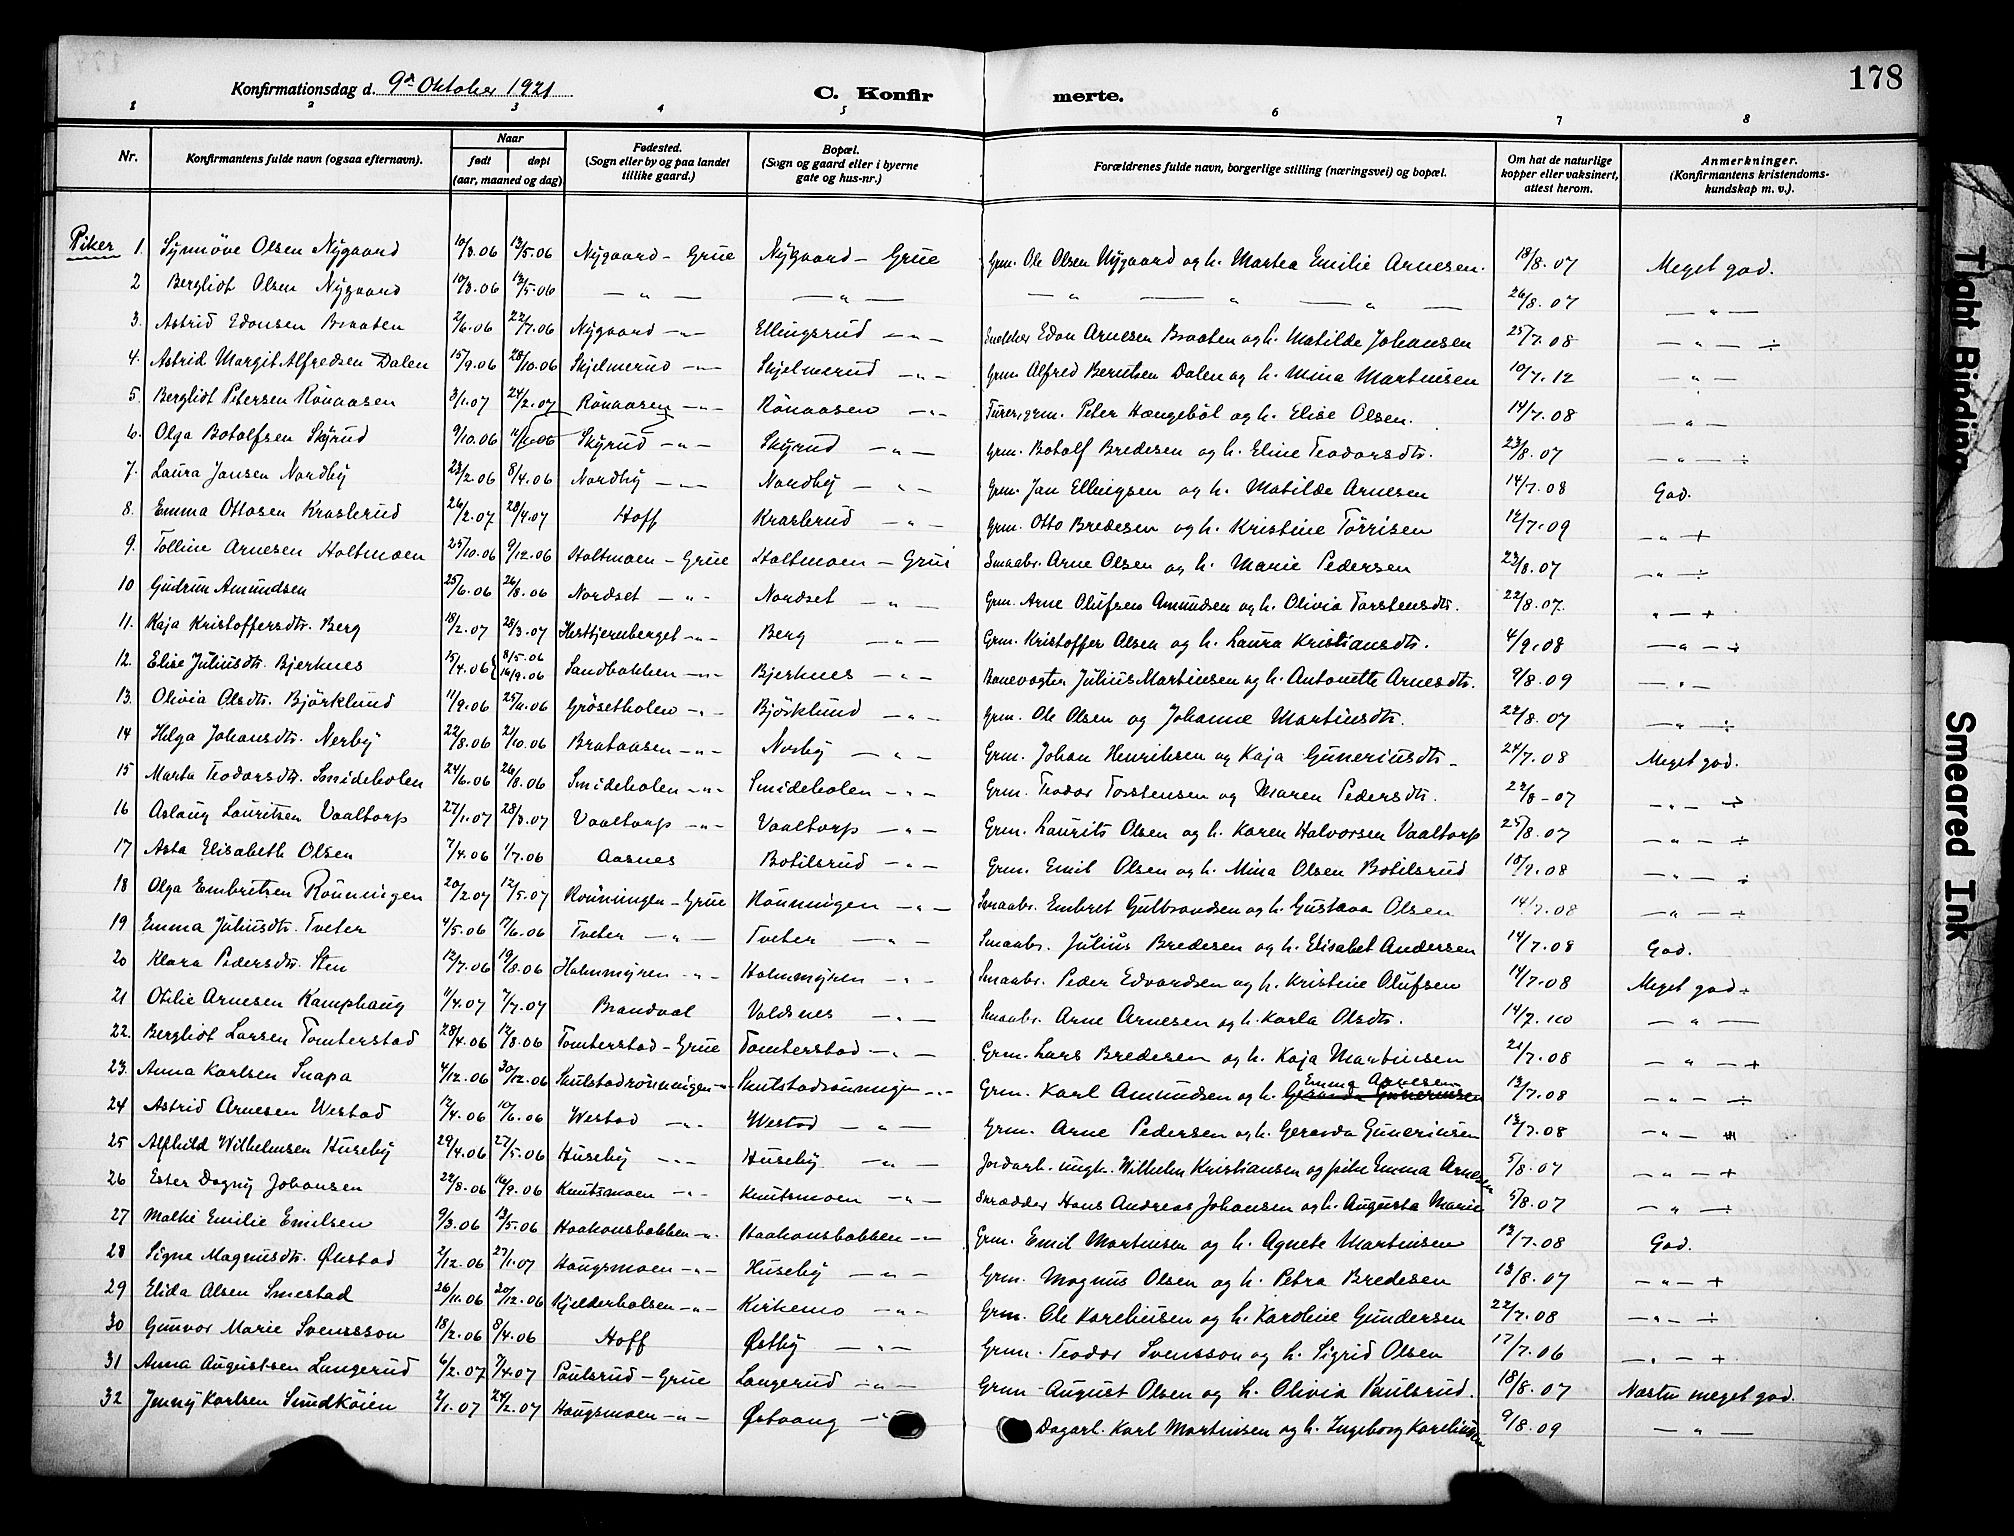 178
Konfirmationsdag d. 9de Oktober 1921
C. Konfirmerte.
1 2 3 4 5 6 7 8
Nr. Konfirmantens fulde navn (ogsaa efternavn). Naar født døpt (aar, maaned og dag) Fødested. (Sogn eller by og paa landet tillike gaard.) Bopæl. (Sogn og gaard eller i byerne gate og hus-nr.) Forældrenes fulde navn, borgerlige stilling (næringsvei) og bopæl. Om hat de naturlige kopper eller vaksinert, attest herom. Anmerkninger. (Konfirmantens kristendomskundskap m. v.).
Piker 1. Synnöve Olsen Nygaard 10/3.06 13/5.06 Nygaard - Grue Nygaard - Grue Grm. Ole Olsen Nygaard og h. Martea Emilie Arnesen. 18/8.07 Meget god.
2 Bergliot Olsen Nygaard 10/3.06 13/5.06 — " — — " — — " — " — " — 26/8.07 — " —
3. Astrid Edonsen Braaten 2/6.06 22/7.06 Nygaard — " — Ellingsrud — " — Snekker Edon Arnesen Braaten og h. Matilde Johansen 25/7.08 — " — ÷
4. Astrid Margit Alfredsen Dalen 15/9.06 28/10.06 Skjelmerud — " — Skjelmerud — " — Grm. Alfred Berntsen Dalen og h. Mina Martinsen 10/7.12 — " —
5. Bergliot Petersen Rönaasen 3/1.07 24/2.07 Rönaasen — " — Rönaasen — " — Grm. Peter Hængeböl og h. Elise Olsen. 14/7.08 — " —
6. Olga Botolfsen Skyrud 9/10.06 11/11.06 Skyrud — " — Skyrud — " — Grm. Botolf Bredesen og h. Eline Teodorsdtr. 23/8.07 — " — ÷
7. Laura Jansen Nordby 23/2.06 8/4.06 Nordby — " — Nordby — " — Grm. Jan Ellingsen og h. Matilde Arnesen 14/7.08 God.
8. Emma Ottosen Kraslerud 26/2.07 28/4.07 Hoff Kraslerud — " — Grm. Otto Bredesen og h. Kristine Törrisen 12/7.09 — " — +
9. Tolline Arnesen Holtmoen 25/10.06 9/12.06 Holtmoen - Grue Holtmoen - Grue Smaabr. Arne Olsen og h. Marie Pedersen 23/8.07 — " — ÷
10 Gudrun Amundsen 25/6.06 26/8.06 Nordset — " — Nordset — " — Grm. Arne Olufsen Amundsen og h. Olivia Torstensdtr. 22/8.07. — " — +
11. Kaja Kristoffersdtr. Berg 18/2.07 28/3.07 Hesttjernberget — " — Berg — " — Grm. Kristoffer Olsen og h. Laura Kristiansdtr. 4/9.08 — " — +
12. Elise Juliusdtr. Bjerknes 15/4.06 { 8/5.06 16/9.06 Sandbakken — " — Bjerknes — " — Banevogter Julius Martinsen og h. Antonette Arnesdtr. 9/8.09 — " —
13. Olivia Olsdtr. Björklund 11/9.06 25/11.06 Grösetholen — " — Björklund — " — Grm. Ole Olsen og Johanne Martinsdtr. 22/8.07 — " — ÷
14 Helga Johansdtr. Nerby 22/8.06 21/10.06 Brataasen — " — Nerby — " — Grm. Johan Henriksen og Kaja Guneriusdtr. 24/7.08 Meget god.
15 Marta Teodorsdtr. Smideholen 24/6.06 26/8.06 Smideholen — " — Smideholen — " — Grm. Teodor Torstensen og Maren Pedersdtr. 22/8-07 — " — +
16 Aslaug Lauritsen Vaaltorp 27/1.07 28/3.07 Vaaltorp — " — Vaaltorp — " — Grm. Laurits Olsen og h. Karen Halvorsen Vaaltorp 25/8.07 — " — ÷
17 Asta Elisabeth Olsen 7/4.06 1/7.06 Aasnes Botilsrud — " — Grm. Emil Olsen og h. Mina Olsen Botilsrud 18/7.08 — " — ÷
18 Olga Embretsen Rönningen 20/2.07 12/5.07 Rönningen - Grue Rönningen — " — Smaabr. Embret Gulbrandsen og h. Gustava Olsen 14/7.08 — " — ÷
19 Emma Juliusdtr. Tveter 4/5.06 17/6.06 Tveter — " — Tveter — " — Smaabr. Julius Bredesen og h. Elisabet Andersen 14/7.08 God.
20 Klara Pedersdtr. Sten 12/7.06 19/8.06 Holmmyren — " — Holmmyren — " — Smaabr. Peder Edvardsen og h. Kristine Olufsen 14/7.08 Meget god.
21 Otilie Arnesen Kamphaug 11/4.07 7/7.07 Brandval Valdsnes — " — Smaabr. Arne Arnesen og h. Karla Olsdtr. — " —
22. Bergliot Larsen Tomterstad 28/4.06 12/8.06 Tomterstad - Grue Tomterstad — " — Grm. Lars Bredesen og h. Kaja Martinsen 21/7.08 — " — +
23. Anna Karlsen Snapa 4/12.06 30/12.06 Skulstadrönningen — " — Skulstadrönningen — " — Grm. Karl Amundsen og h. Emma Arnesen 13/7.08 — " — ÷
24 Astrid Arnesen Westad 12/4.06 10/6.06 Westad — " — Westad — " — Grm. Arne Pedersen og h. Geranda Guneriusen 13/7.08 — " —
25 Alfhild Wilhelmsen Huseby 29/4.06 27/5.06 Huseby — " — Huseby — " — Jordarb. ungk. Wilhelm Kristiansen og pike Emma Arnesen 5/8.07 — " — +
26 Ester Dagny Johansen 22/8.06 16/9.06 Knutsmoen — " — Knutsmoen — " — Skrædder Hans Andreas Johansen og h. Augusta Marie 5/8.07 — " — ÷
27 Malki Emilie Emilsen 9/3.06 13/5.06 Haakonsbakken — " — Haakonsbakken — " — Grm. Emil Martinsen og h. Agnete Martinsen 13/7.08 God.
28 Signe Magnusdtr. Økstad 2/12.06 27/1.07 Haugsmoen — " — Huseby — " — Grm. Magnus Olsen og h. Petra Bredesen 13/8.07 — " — +
29 Elida Olsen Smestad 26/11.06 20/12.06 Kjelderholsen — " — Kirkemo — " — Grm. Ole Karelinsen og h. Karoline Gundersen 22/7.08 — " — ÷
30 Gunvor Marie Svensson 18/2.06 8/4.06 Hoff Østby — " — Grm. Teodor Svensson og h. Sigrid Olsen 17/7.06 — " — +
31 Anna Augustsen Langerud 6/2.07 7/4.07 Paulsrud - Grue Langerud — " — Grm August Olsen og h. Olivia Paulsrud. 18/8.07 Næsten meget god.
32 Jenny Karlsen Sundköien 2/1.07 24/2.07 Haugsmoen — " — Østvang — " — Dagarb. Karl Martinsen og h. Ingeborg Karelinsen 9/8.09 — " —
Tight Binding
Smeared Ink